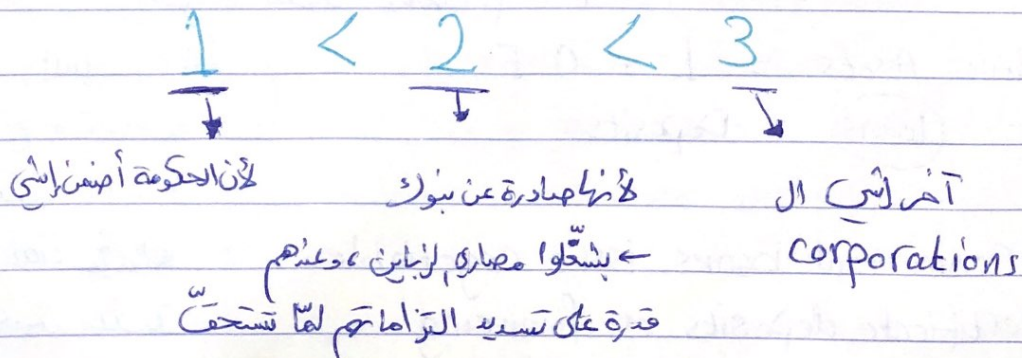 1 < 2 < 3
لأن الحكومة أضمن إشي
لأنها صادرة عن بنوك
← بشغّلوا مصاري لزباين، وعندهم
قدرة على تسديد التزاماتهم لمّا تستحقّ
آخر إشي ال
corporations